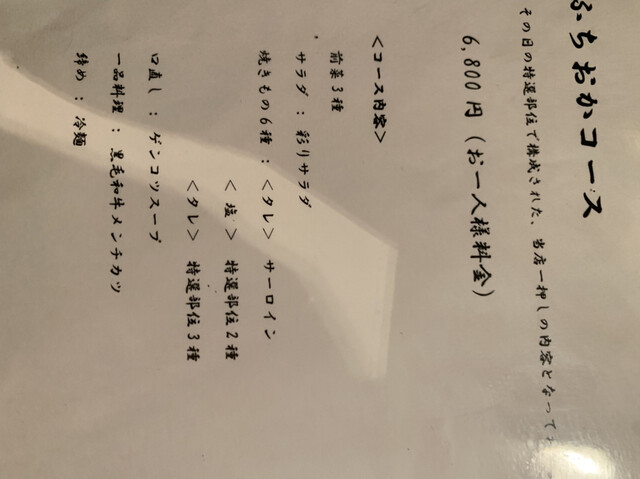 ふちおかコース
その日の特選部位で構成された、当店一押しの内容となって
6,800円(お一人様料金)
<コース内容>
前菜3種
サラダ:彩りサラダ
焼きもの6種:<タレ>サーロイン
<塩>特選部位2種
<タレ>特選部位3種
口直し:ゲンコツスープ
一品料理:黒毛和牛メンチカツ
締め:冷麺